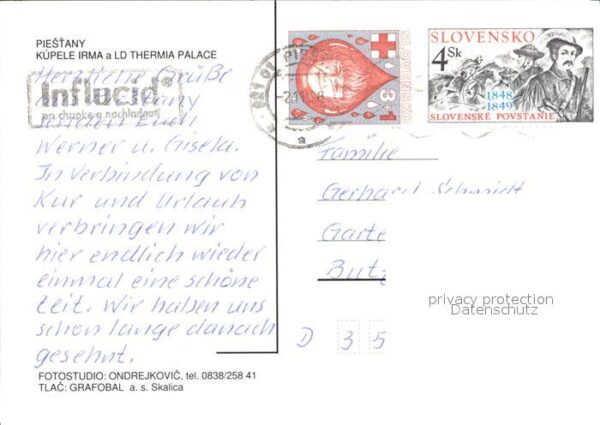 PIEŠŤANY
KÚPELE IRMA a LD THERMIA PALACE
Herzliche Grüße
senden Euch
Werner u. Gisela.
In Verbindung von
Kur und Urlaub
verbringen wir
hier endlich wieder
einmal eine schöne
Zeit. Wir haben uns
schon lange danach
gesehnt.
Influcid
pri chrípke a nachladnutí
FOTOSTUDIO: ONDREJKOVIČ, tel. 0838/258 41
TLAČ: GRAFOBAL a. s. Skalica
SLOVENSKO
3+1
SLOVENSKO
4 Sk
1848
1849
SLOVENSKÉ POVSTANIE
Familie
Gerhard Schmidt
Garte
Butz
privacy protection
Datenschutz
D 3 5